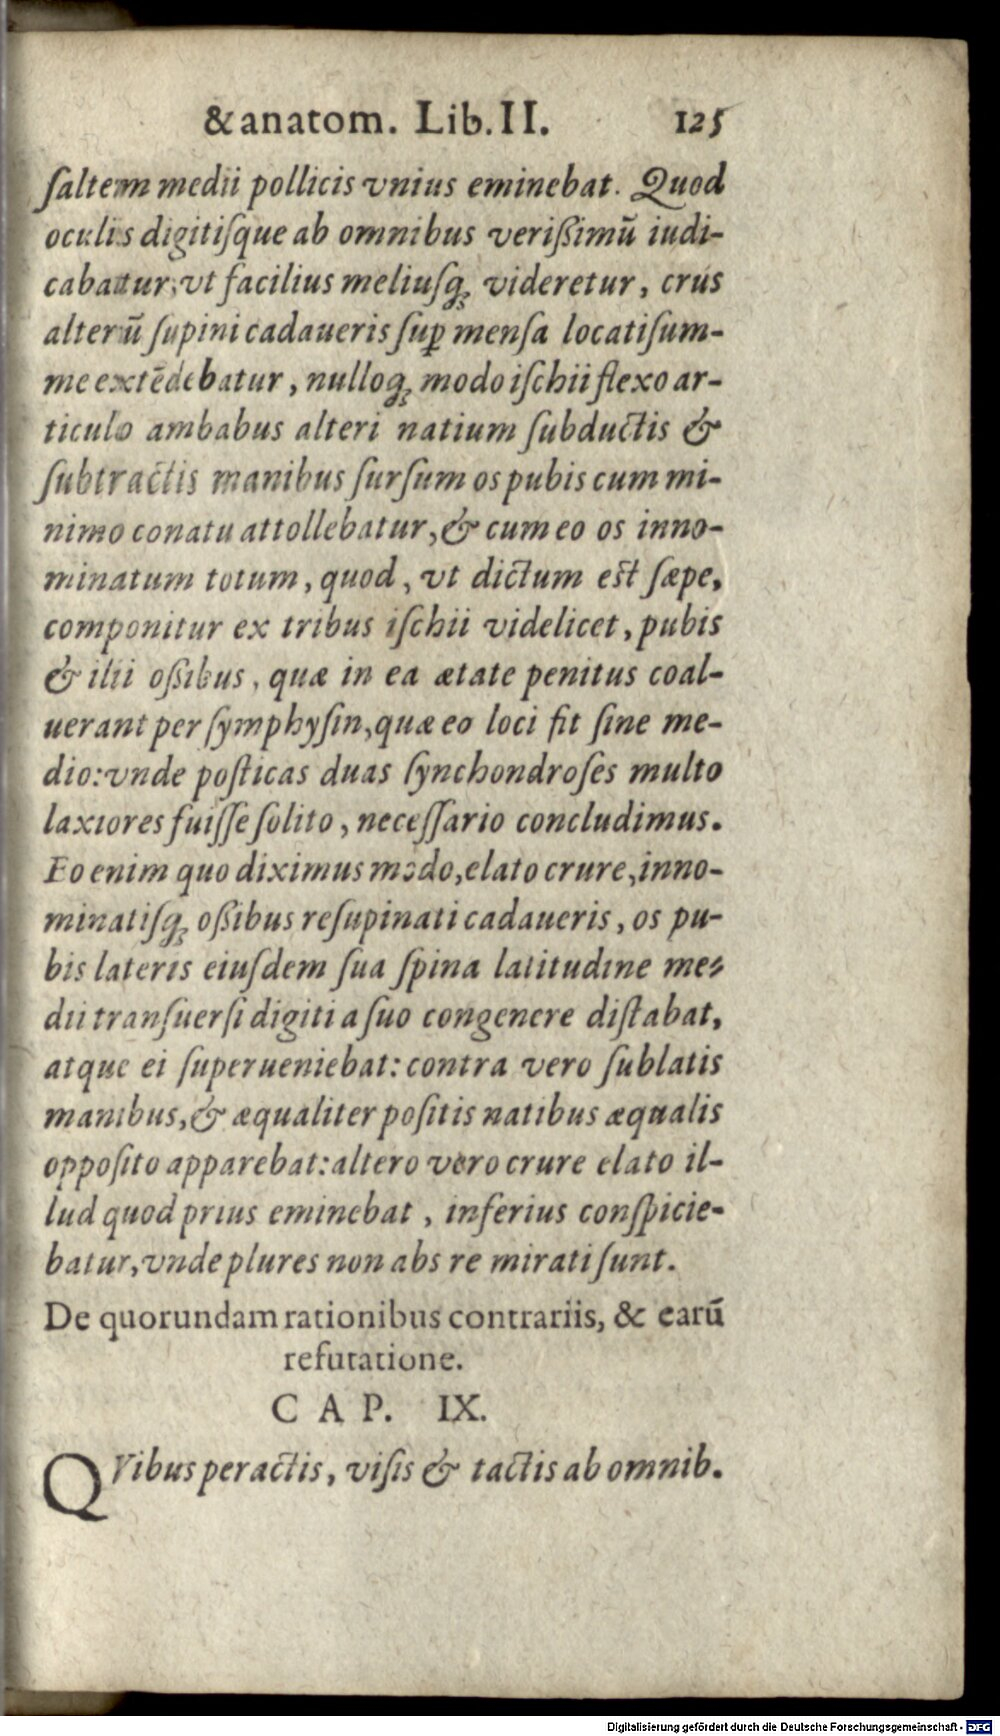 & anatom. Lib. II. 125
ſaltem medii pollicis vnius eminebat. Quod
oculis digitiſque ab omnibus verißimū iudi-
cabatur, vt facilius meliuſq́; videretur, crus
alterū ſupini cadaueris ſuꝑ menſa locati ſum-
me extēdebatur, nulloq́; modo iſchii flexo ar-
ticulo ambabus alteri natium ſubductis &
ſubtractis manibus ſurſum os pubis cum mi-
nimo conatu attollebatur, & cum eo os inno-
minatum totum, quod, vt dictum est ſæpe,
componitur ex tribus iſchii videlicet, pubis
& ilii oßibus, quæ in ea ætate penitus coal-
uerant per ſymphyſin, quæ eo loci fit ſine me-
dio: vnde poſticas duas ſynchondroſes multo
laxiores fuiſſe ſolito, neceſſario concludimus.
Eo enim quo diximus modo, elato crure, inno-
minatiſq́; oßibus reſupinati cadaueris, os pu-
bis lateris eiuſdem ſua ſpina latitudine me-
dii tranſuerſi digiti a ſuo congenere diſtabat,
atque ei ſuperueniebat: contra vero ſublatis
manibus, & æqualiter poſitis natibus æqualis
oppoſito apparebat: altero vero crure elato il-
lud quod prius eminebat, inferius conſpicie-
batur, vnde plures non abs re mirati ſunt.
De quorundam rationibus contrariis, & earū
refutatione.
CAP. IX.
QVibus peractis, viſis & tactis ab omnib.
Digitalisierung gefördert durch die Deutsche Forschungsgemeinschaft - DFG